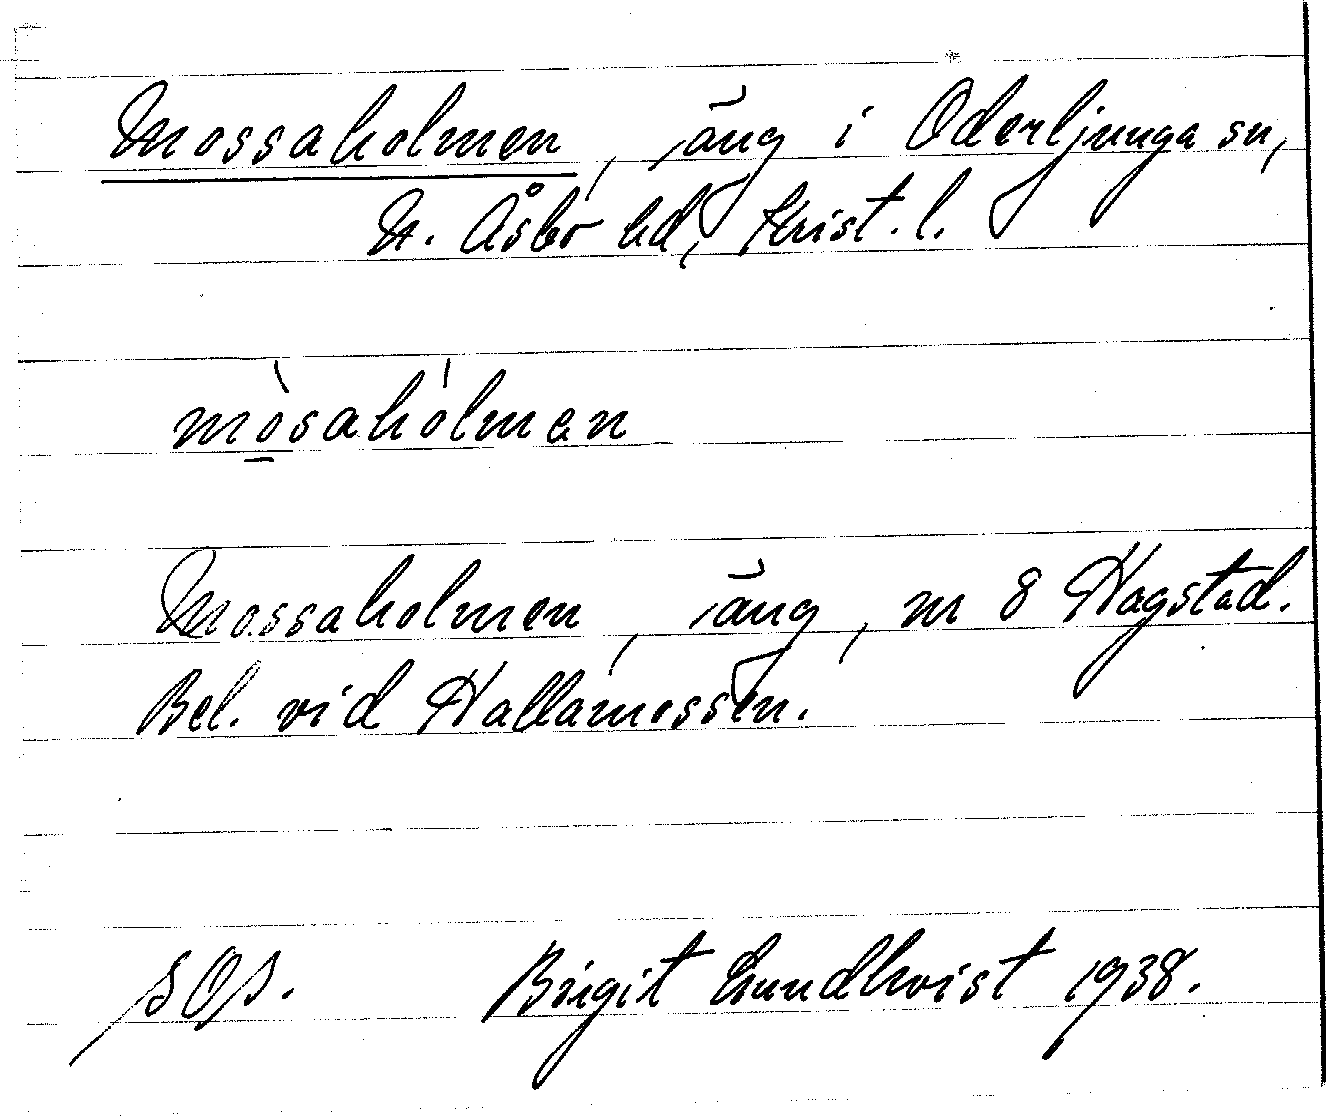 Mossaholmen, äng i Oderljunga sn,
N. Åsbo hd, Krist. l.
mò̲sahólmen
Mossaholmen, äng, nr 8 Hagstad.
Bel. vid Hallamossen.
SOS. Birgit Lundkvist 1938.